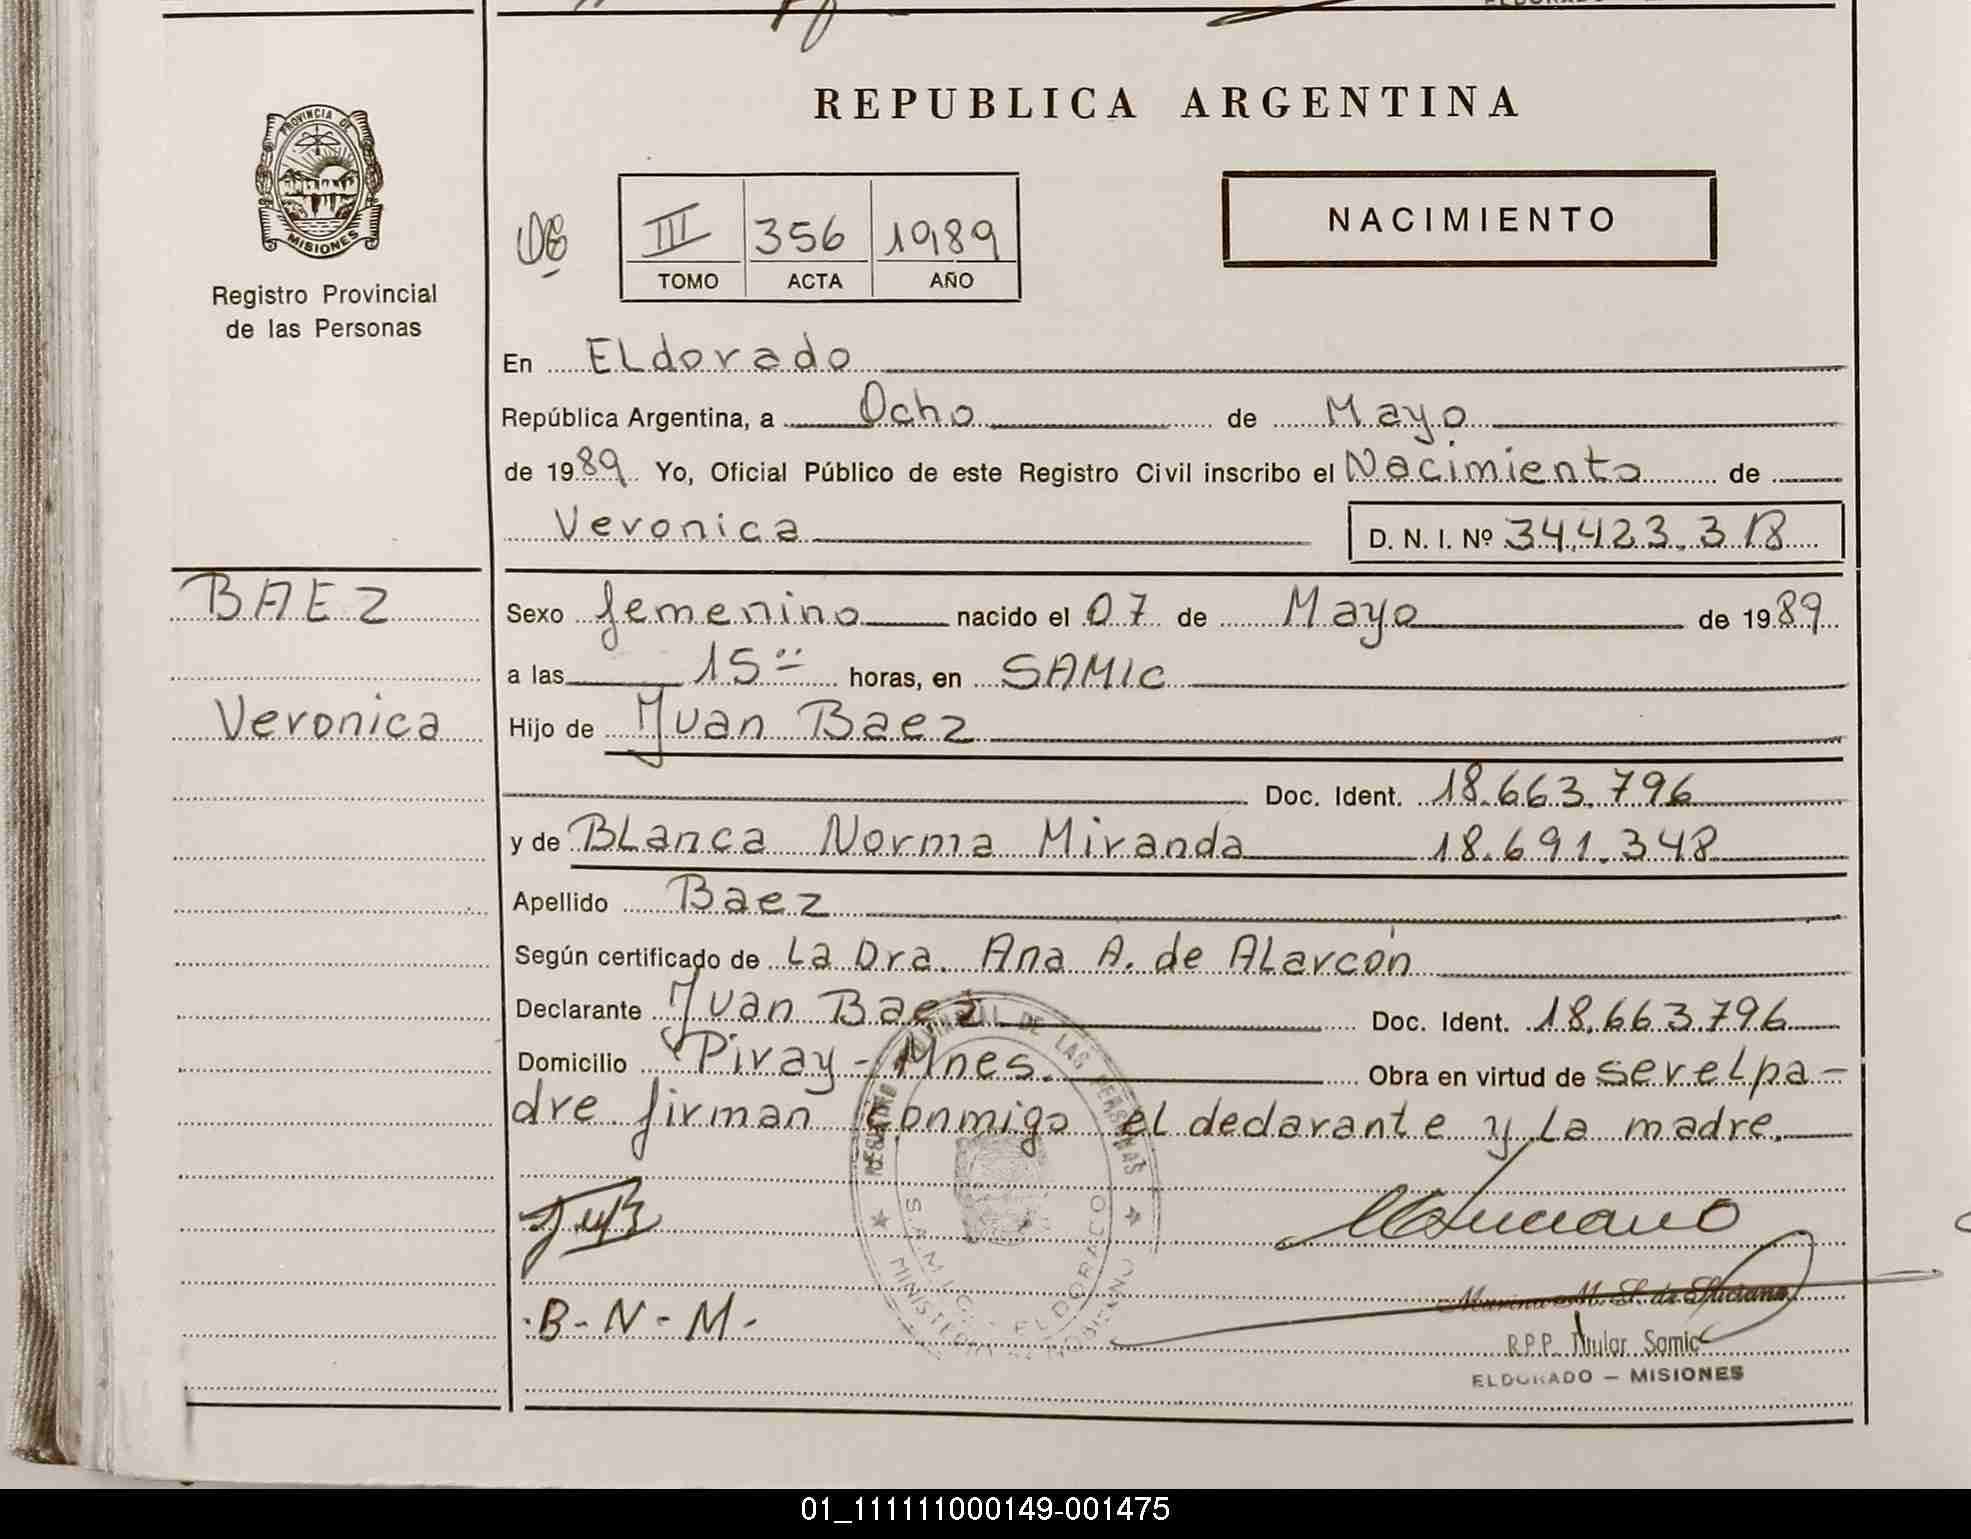 ELDORADO
REPUBLICA ARGENTINA
PROVINCIA DE
MISIONES
Registro Provincial
de las Personas
III 356 1989
TOMO ACTA AÑO
NACIMIENTO
En Eldorado
República Argentina, a Ocho de Mayo
de 1989 Yo, Oficial Público de este Registro Civil inscribo el Nacimiento de
Veronica D. N. I. Nº 34.423.318
BAEZ
Sexo femenino nacido el 07 de Mayo de 1989
a las 15 horas, en SAMIC
Veronica
Hijo de Juan Baez
Doc. Ident. 18.663.796
y de Blanca Norma Miranda 18.691.348
Apellido Baez
Según certificado de La Dra. Ana A. de Alarcón
Declarante Juan Baez Doc. Ident. 18.663.796
Domicilio Piray - Mnes. Obra en virtud de ser el pa-
dre firman conmigo el declarante y la madre.
REGISTRO PROVINCIAL DE LAS PERSONAS
S.A.M.I.C. - ELDORADO
MINISTERIO DE GOBIERNO
B-N-M.
Marina M. S. de
R.P.P. Titular Samic
ELDORADO – MISIONES
01_111111000149-001475